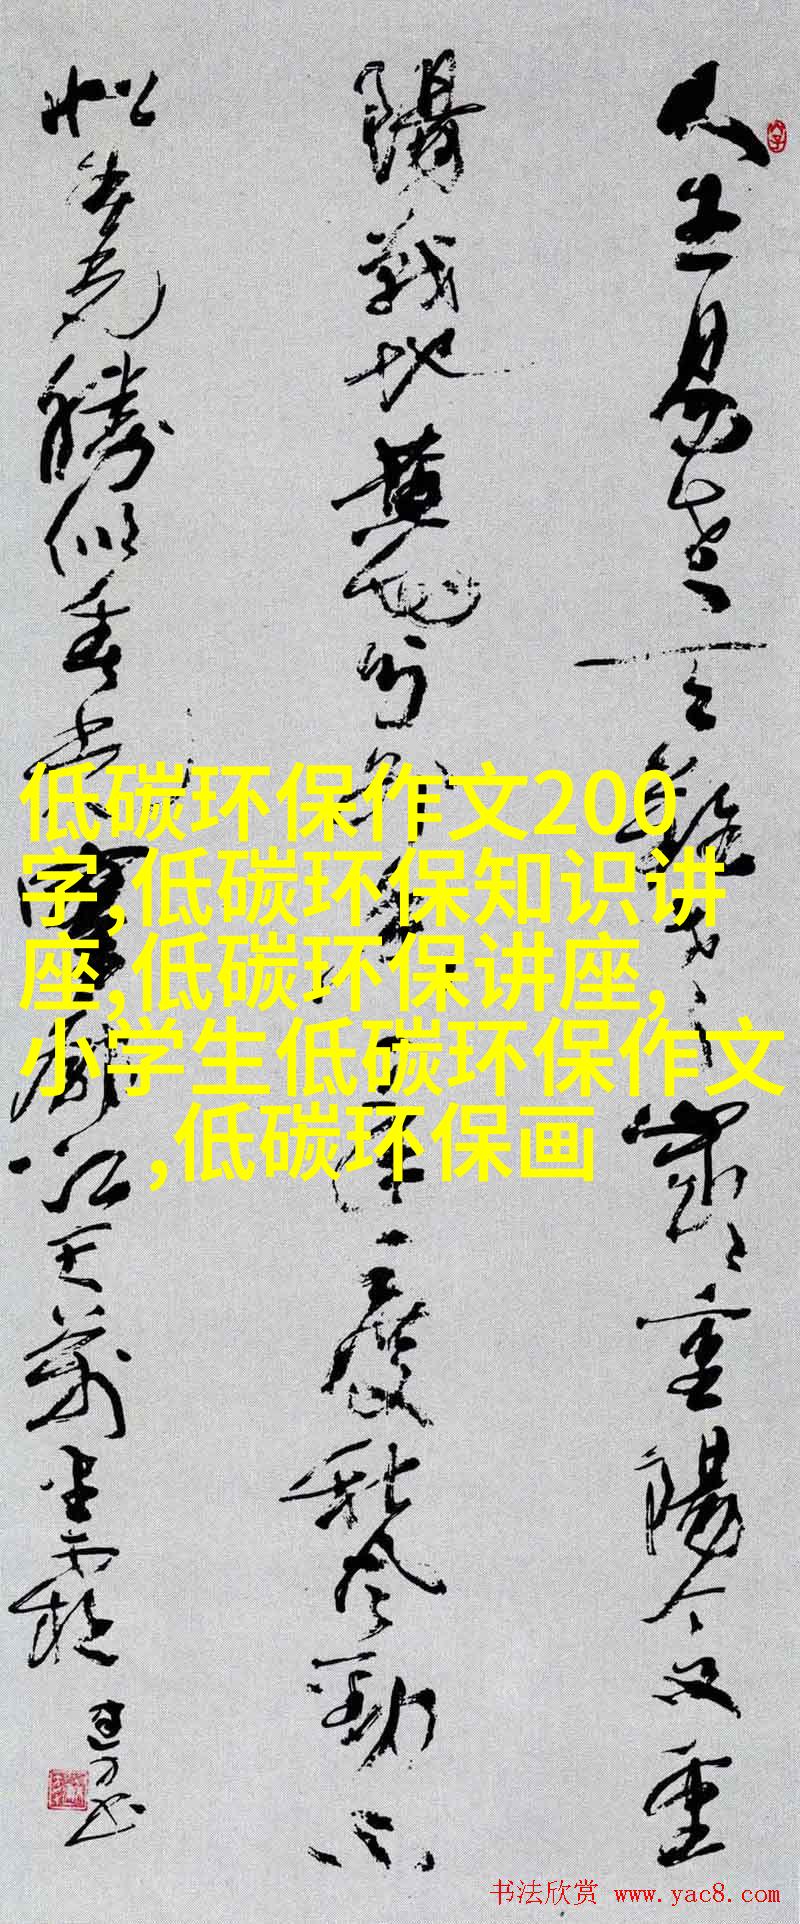 人生易老天難老歲々重陽今又重
陽戰地黃花分外香一年一度秋風勁不
似春光勝似春光寥廓江天萬里霜
低碳环保作文200
字,低碳环保知识讲
座,低碳环保讲座,
小学生低碳环保作文
,低碳环保画
书法欣赏 www.yac8.com